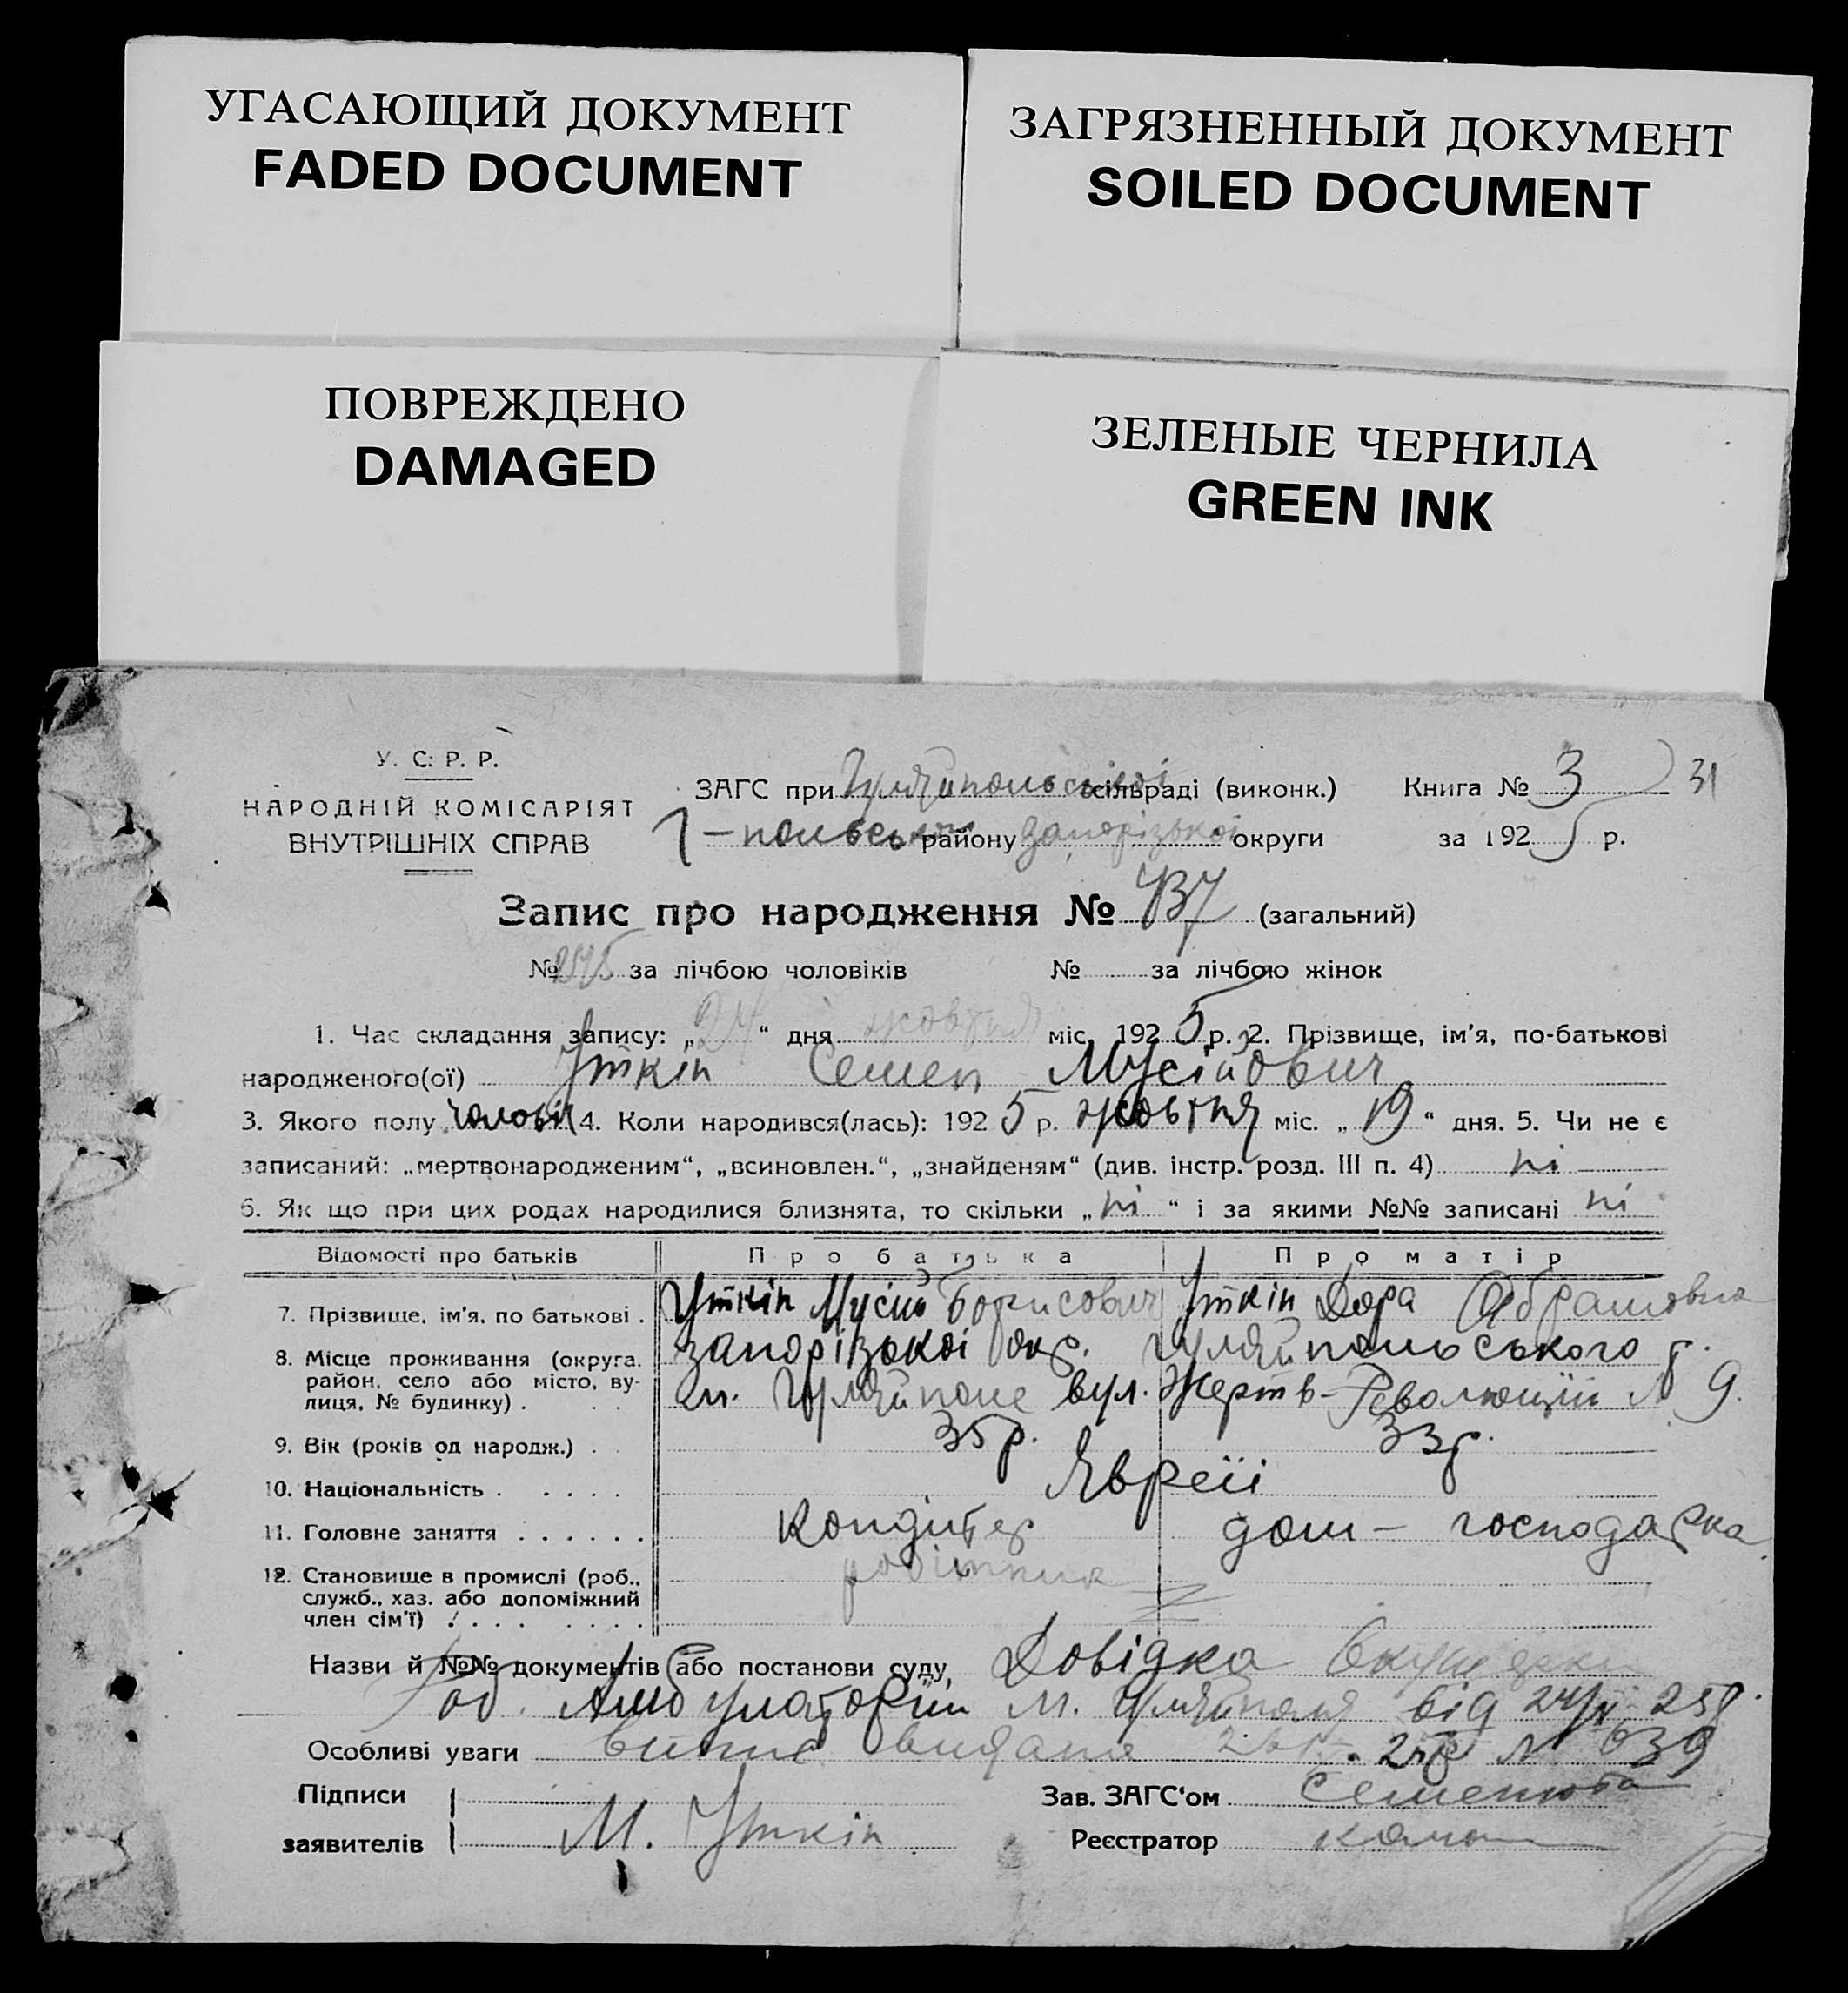 УГАСАЮЩИЙ ДОКУМЕНТ
FADED DOCUMENT
ЗАГРЯЗНЕННЫЙ ДОКУМЕНТ
SOILED DOCUMENT
ПОВРЕЖДЕНО
DAMAGED
ЗЕЛЕНЫЕ ЧЕРНИЛА
GREEN INK
У. С. Р. Р.
НАРОДНІЙ КОМІСАРІЯТ
ВНУТРІШНІХ СПРАВ
ЗАГС при Гуляйпольській сільраді (виконк.) Книга № 3 31
Г-польськ району Запорізької округи за 192 5 р.
Запис про народження № 437 (загальний)
№ за лічбою чоловіків № за лічбою жінок
1. Час складання запису: „24“ дня жовтня міс. 192 5 р. 2. Прізвище, ім'я, по-батькові
народженого(ої) Уткін Семен Мусійович
3. Якого полу чоловіч 4. Коли народився(лась): 192 5 р. жовтня міс. „19“ дня. 5. Чи не є
записаний: „мертвонародженим“, „всиновлен.“, „знайденям“ (див. інстр. розд. III п. 4) ні
6. Як що при цих родах народилися близнята, то скільки „ні“ і за якими №№ записані ні
Відомості про батьків Про батька Про матір
7. Прізвище, ім'я, по батькові . Уткін Мусій Борисович Уткін Дора Абрамовна
8. Місце проживання (округа, район, село або місто, вулиця, № будинку) . Запорізької окр. Гуляйпольського р.
м. Гуляйполе вул. Жертв-Революції № 9.
9. Вік (років од народж.) . . 35 р. 33 р.
10. Національність . . . . . Явреїі
11. Головне заняття . . . . . . Кондітер дом-господарка
12. Становище в промислі (роб., служб., хаз. або допоміжний член сім'ї) . . . . робітник
Назви й №№ документів або постанови суду, Довідка Окушерки
од. Амбулаторіи м. Гуляйполя від 24/X 25р.
Особливі уваги Витис видана 25р № 639
Підписи заявителів М. Уткін
Зав. ЗАГС'ом Семенюта
Реєстратор